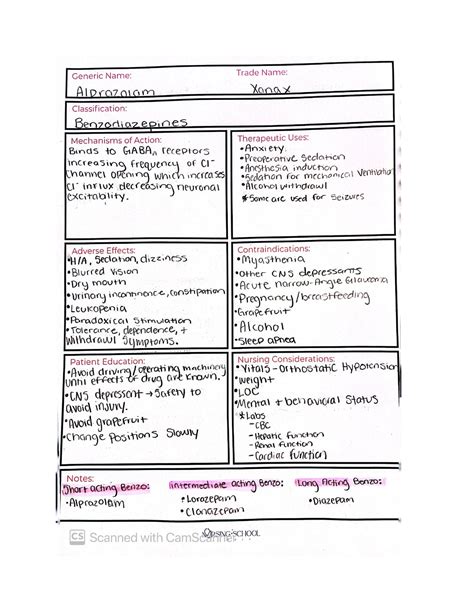 Generic Name:
Trade Name:
Alprazolam
Xanax
Classification:
Benzodiazepines
Mechanisms of Action:
Binds to GABAA receptors
increasing frequency of Cl-
channel opening which increases
Cl- influx decreasing neuronal
excitability.
Therapeutic Uses:
•Anxiety.
•Preoperative Sedation
•Anesthesia induction
•Sedation for mechanical ventilation
•Alcohol withdrawl
*Some are used for Seizures
Adverse Effects:
•H/A, Sedation, dizziness
•Blurred vision
•Dry mouth
•Urinary incontinence, constipation
•Leukopenia
•Paradoxical Stimulation
•Tolerance, dependence, +
withdrawl symptoms.
Contraindications:
•Myasthenia
•Other CNS depressants
•Acute narrow-Angle Glaucoma
•Pregnancy/breastfeeding
•Grapefruit
•Alcohol
•Sleep apnea
Patient Education:
•Avoid driving/operating machinery
until effects of drug are known.
•CNS depressant → Safety to
avoid injury.
•Avoid grapefruit
•Change Positions Slowly
Nursing Considerations:
•Vitals - Orthostatic Hypotension
•Weight
•LOC
•Mental + behavioral Status
*Labs
-CBC
-Hepatic Function
-Renal Function
-Cardiac Function
Notes:
Short acting Benzo:
intermediate acting Benzo:
Long Acting Benzo:
•Alprazolam
•Lorazepam
•Diazepam
•Clonazepam
NURSING•SCHOOL
CS Scanned with CamScanner